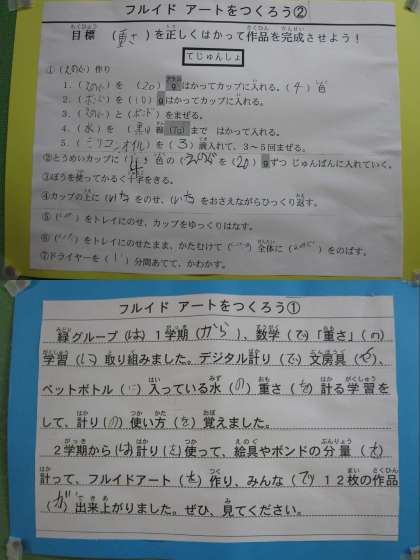 フルイド アートをつくろう②
目標 (重さ)を正しくはかって作品を完成させよう！
てじゅんしょ
①(えのぐ)作り
1.(えのぐ)を (20)gはかってカップに入れる。(4)色
2.(ボンド)を (10)gはかってカップに入れる。
3.(えのぐ)と(ボンド)をまぜる。
4.(水)を (黒い線)まで はかって入れる。
5.(シリコンオイル)を (3)滴入れて、3～5回まぜる。
②とうめいカップに( 色の(えのぐ)を(20)gずつ じゅんばんに入れていく。
③ぼうを使ってかるく十字をきる。
④カップの上に(いた)をのせ、(いた)をおさえながらひっくり返す。
⑤( )をトレイにのせ、カップをゆっくりはなす。
⑥( )をトレイにのせたまま、かたむけて( )全体に( )をのばす。
⑦ドライヤーを( )分間あてて、かわかす。
フルイド アートをつくろう①
緑グループ(は)1学期(から)、数学(で)「重さ」(の)
学習(に)取り組みました。デジタル計り(で)文房具(や)、
ペットボトル(に)入っている水(の)重さ(を)計る学習を
して、計り(の)使い方(を)覚えました。
2学期から(は)計り(を)使って、絵具やボンドの分量(を)
計って、フルイドアート(を)作り、みんな(で)12枚の作品
(が)出来上がりました。ぜひ、見てください。